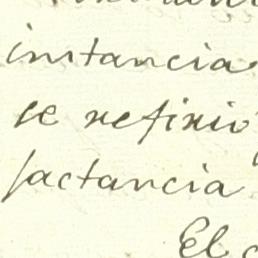 instancia
se refirió
jactancia
El